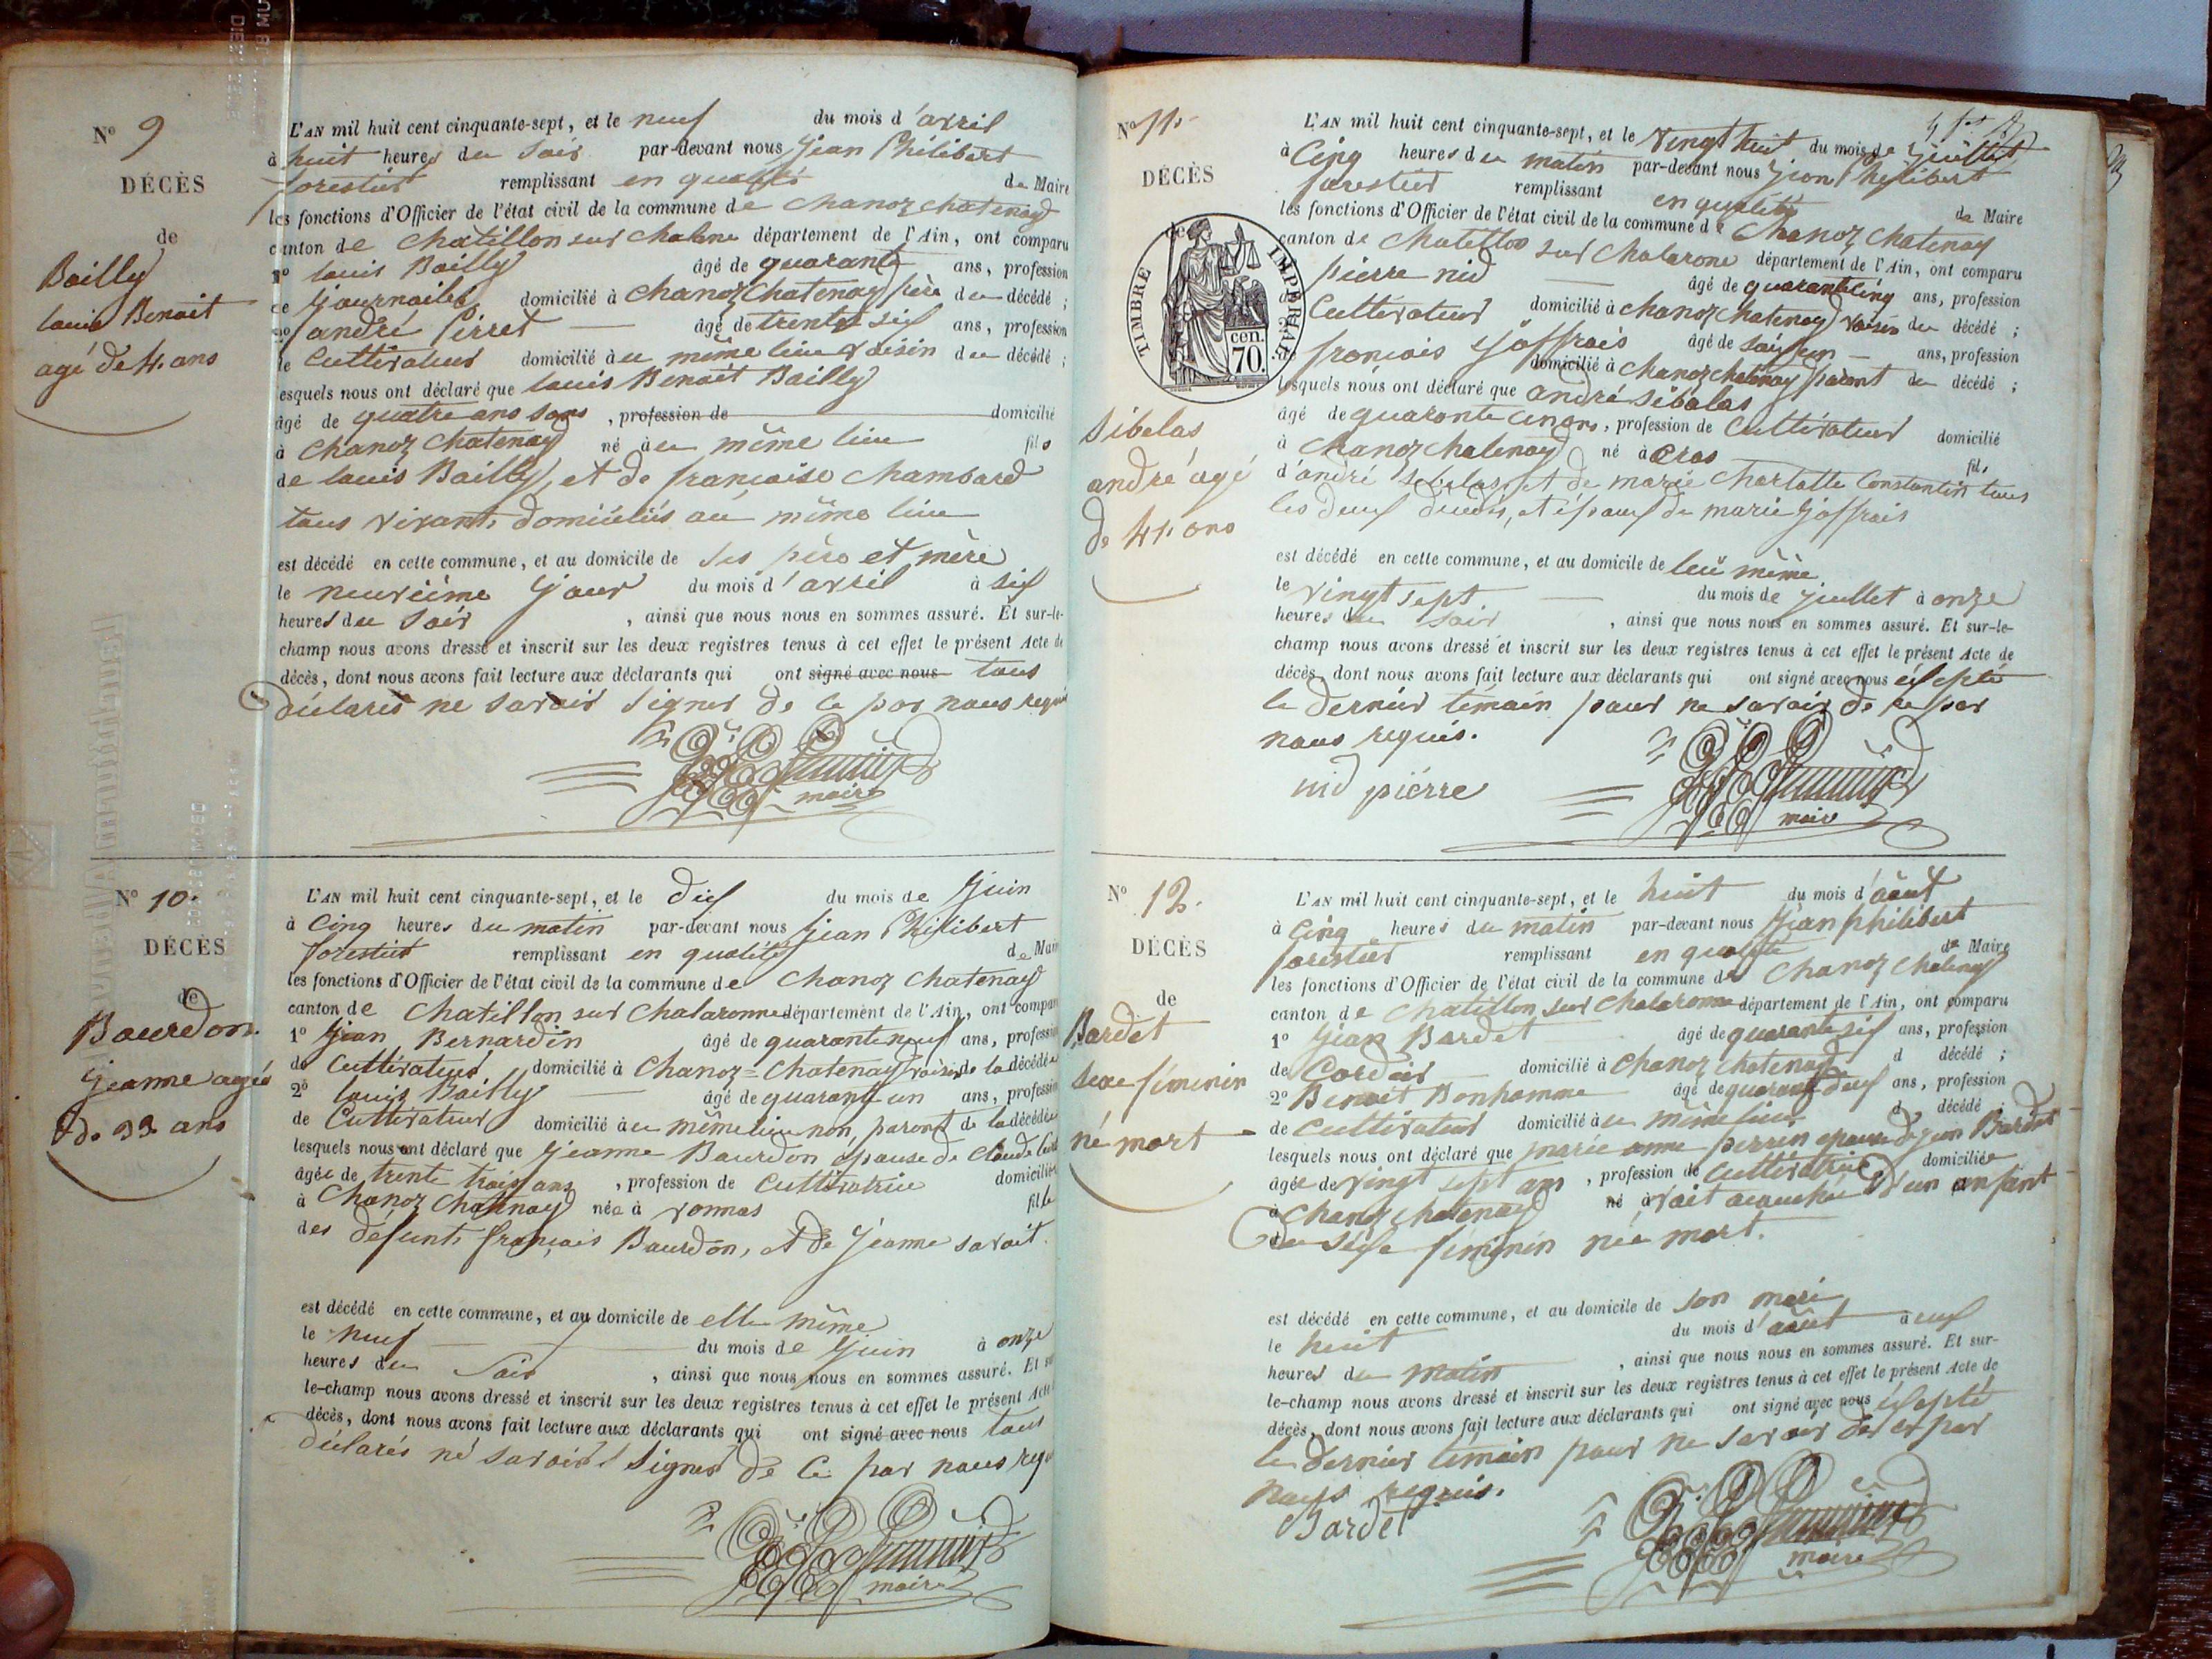 N° 9
DÉCÈS
de
Bailly
louis Benoit
agé de 4. ans
L'AN mil huit cent cinquante-sept, et le neuf du mois d'avril
à huit heures du Soir par-devant nous Jean Philibert
forestier remplissant en qualité de Maire
les fonctions d'Officier de l'état civil de la commune de chanoz chatenay
canton de chatillon sur chalarne département de l'Ain, ont comparu
1° louis Bailly âgé de quarante ans, profession
de Journailler domicilié à chanoz chatenay père du décédé ;
2° andré Perret âgé de trente six ans, profession
de Cultivateur domicilié à u même lieu voisin du décédé ;
lesquels nous ont déclaré que louis Benoit Bailly
âgé de quatre ans sans , profession de domicilié
à chanoz chatenay né à u même lieu fils
de louis Bailly, et de francoise chambard
tous vivants domiciliés au même lieu
est décédé en cette commune, et au domicile de ses père et mère
le neuvième Jour du mois d'avril à six
heures du Soir , ainsi que nous nous en sommes assuré. Et sur-le-
champ nous avons dressé et inscrit sur les deux registres tenus à cet effet le présent Acte de
décès, dont nous avons fait lecture aux déclarants qui ont signé avec nous tous
déclarés ne savoir signer de ce par nous requis
maire
N° 10.
DÉCÈS
de
Bourdon
Jeanne agée
de 33 ans
L'AN mil huit cent cinquante-sept, et le dix du mois de Juin
à Cinq heures du matin par-devant nous Jean Philibert
forestier remplissant en qualité de Maire
les fonctions d'Officier de l'état civil de la commune de Chanoz Chatenay
canton de Chatillon sur Chalaronne département de l'Ain, ont comparu
1° Jean Bernardin âgé de quarante neuf ans, profession
de Cultivateur domicilié à Chanoz=Chatenay voisin de la décédée
2° louis Bailly âgé de quarante un ans, profession
de Cultivateur domicilié à u même lieu non parent de la décédée
lesquels nous ont déclaré que Jeanne Bourdon épouse de Claude
âgée de trente trois ans , profession de Cultivatrice domiciliée
à Chanoz Chatenay née à vonnas fille
des défunts françois Bourdon, et de Jeanne savoit
est décédé en cette commune, et au domicile de elle même
le neuf du mois de Juin à onze
heures du Soir , ainsi que nous nous en sommes assuré. Et sur-
le-champ nous avons dressé et inscrit sur les deux registres tenus à cet effet le présent Acte
décès, dont nous avons fait lecture aux déclarants qui ont signé avec nous tous
déclarés né savoir signer de ce par nous requis
maire
N° 11.
DÉCÈS
de
TIMBRE IMPÉRIAL
70. cen.
Sibelas
andré agé
de 41. ans
L'AN mil huit cent cinquante-sept, et le vingt huit du mois de Juillet
à Cinq heures du matin par-devant nous Jean Philibert
forestier remplissant en qualité de Maire
les fonctions d'Officier de l'état civil de la commune de Chanoz Chatenay
canton de Chatillon sur Chalarone département de l'Ain, ont comparu
pierre nid âgé de quarante cinq ans, profession
de Cultivateur domicilié à chanoz chatenay voisin du décédé ;
françois Joffrais âgé de ans, profession
domicilié à chanoz chatenay parent du décédé ;
lesquels nous ont déclaré que andré sibélas
âgé de quarante un ans, profession de Cultivateur domicilié
à Chanoz Chatenay né à Cras fils
d'andré sibelas, et de marie Charlotte Constantin tous
les deux décédés, et époux de marie Joffrais
est décédé en cette commune, et au domicile de lui même
le vingt sept du mois de Juillet à onze
heures du soir , ainsi que nous nous en sommes assuré. Et sur-le-
champ nous avons dressé et inscrit sur les deux registres tenus à cet effet le présent Acte de
décès, dont nous avons fait lecture aux déclarants qui ont signé avec nous éxcepté
le dernier témoin pour ne savoir de ce par
nous requis.
nid pierre
maire
N° 12.
DÉCÈS
de
Bardet
sexe féminin
né mort
L'AN mil huit cent cinquante-sept, et le huit du mois d'août
à Cinq heures du matin par-devant nous Jean philibert
forestier remplissant en qualité de Maire
les fonctions d'Officier de l'état civil de la commune de Chanoz Chatenay
canton de Chatillon sur Chalaronne département de l'Ain, ont comparu
1° Jean Bardet âgé de quarante six ans, profession
de Cordier domicilié à chanoz chatenay d décédé ;
2° Benoit Bonhomme âgé de quarante deux ans, profession
de Cultivateur domicilié à u même lieu d décédé
lesquels nous ont déclaré que marie anne perrin épouse de jean Bardet
âgée de vingt sept ans , profession de Cultivatrice domiciliée
à Chanoz chatenay né avait acouchée d'un enfant
du séxe féminin née mort.
est décédé en cette commune, et au domicile de son mari
le huit du mois d'août à
heures du matin , ainsi que nous nous en sommes assuré. Et sur-
le-champ nous avons dressé et inscrit sur les deux registres tenus à cet effet le présent Acte de
décès, dont nous avons fait lecture aux déclarants qui ont signé avec nous éxcepté
le dernier témoin pour ne savoir de ce par
nous requis.
Bardet
maire